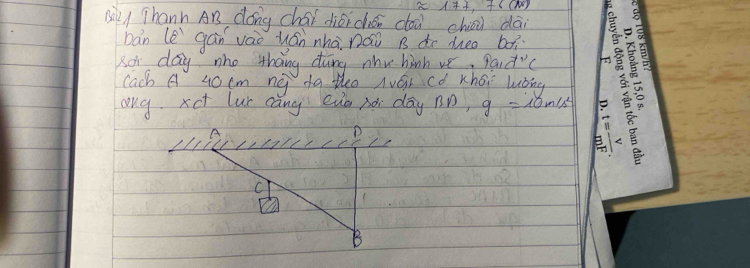 ≈ 177, 76 (N)
Bài 1, Thanh AB đồng chất tiết diện đều chiều dài
bản lề gắn vào trần nhà. Đầu B đc treo bởi
sợi dây nhẹ thẳng đứng như hình vẽ. Tại đ' C
cách A 40 cm ng ta treo 1 vật có khối lượng
2kg. xđ lực căng của sợi dây BD, g = 10 m/s²
A
D
C
B
độ 108 km/h?
D. Khoảng 15,0 s.
g chuyển động với vận tốc ban đầu
F
D. t = v/mF.